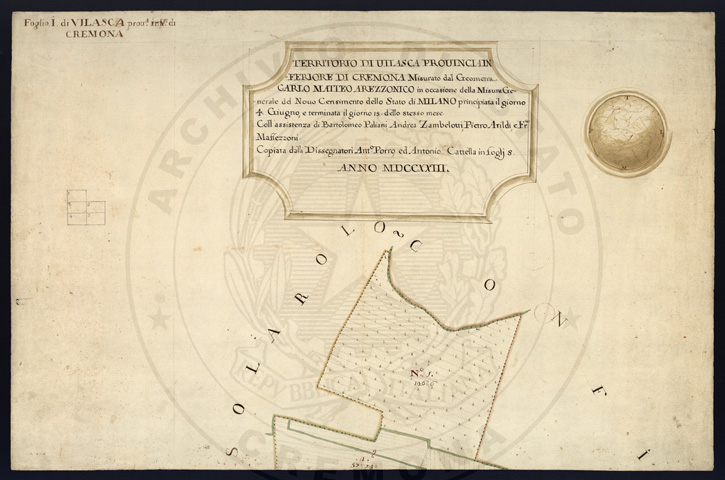 Foglio I. di VILASCA prou.ª inf.e di
CREMONA
TERRITORIO DI VILASCA PROUINCI IN
FERIORE DI CREMONA Misurato dal Geometra
CARLO MATTEO AREZZONICO in occasione della Misura Ge-
nerale del Nouo Censimento dello Stato di MILANO principiata il giorno
4 Giugno e terminata il giorno 13 dello stesso mese
Coll assistenza di Bartolomeo Paliani Andrea Zambelotti Pietro Arildi e Fr
Massezzoni
Copiata dalli Dissegnatori Ant.o Porro ed Antonio Cattella in fogli 8.
ANNO MDCCXXIII.
SOLAROLO
CONFI
N.o 1.
2
ARCHIVIO STATO
REPVBBLICA ITALIANA
CREMONA